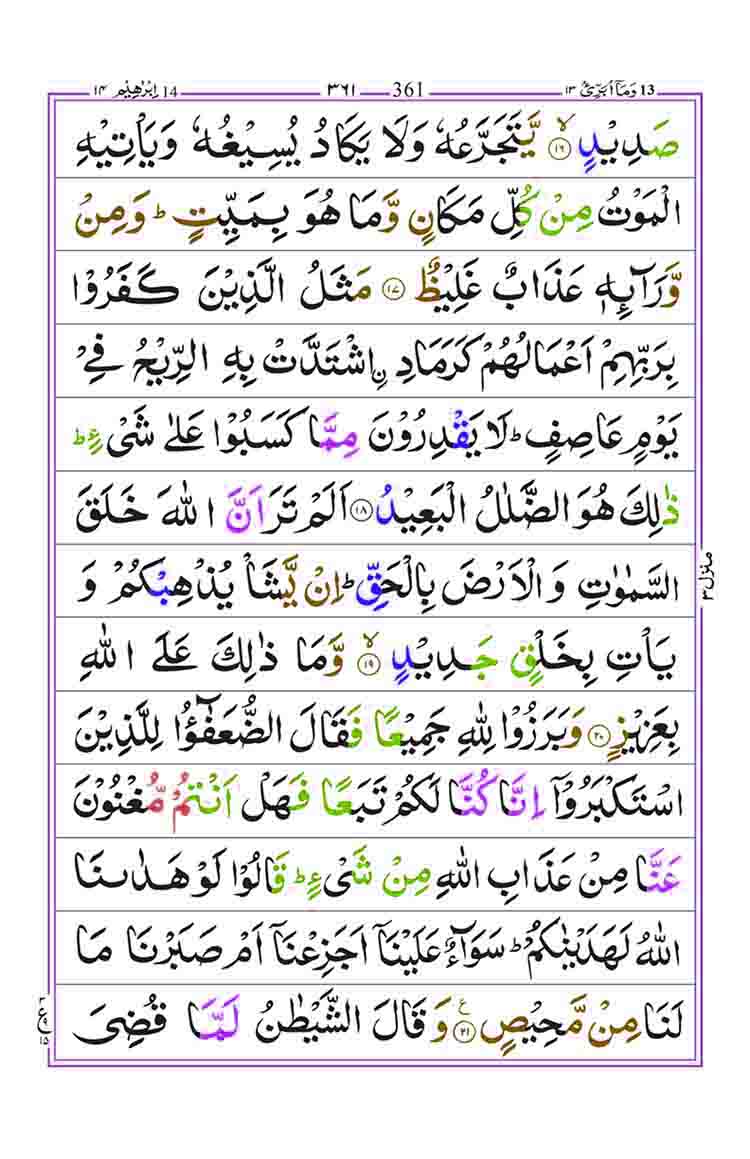 وَمَآ اُبَرِّئُ 13 ١٣ 361 ٣٦١ اِبْرٰهِيْم 14 ١٤
صَدِيْدٍ ۙ‏﴿۱۶﴾ يَّتَجَرَّعُهٗ وَلَا يَكَادُ يُسِيْغُهٗ وَيَاْتِيْهِ
الْمَوْتُ مِنْ كُلِّ مَكَانٍ وَّمَا هُوَ بِمَيِّتٍؕ وَمِنْ
وَّرَآئِهٖ عَذَابٌ غَلِيْظٌ ﴿۱۷﴾ مَثَلُ الَّذِيْنَ كَفَرُوْا
بِرَبِّهِمْ اَعْمَالُهُمْ كَرَمَادِ ِن اشْتَدَّتْ بِهِ الرِّيْحُ فِيْ
يَوْمٍ عَاصِفٍؕ لَا يَقْدِرُوْنَ مِمَّا كَسَبُوْا عَلٰى شَيْءٍؕ
ذٰلِكَ هُوَ الضَّلٰلُ الْبَعِيْدُ ﴿۱۸﴾ اَلَمْ تَرَ اَنَّ اللّٰهَ خَلَقَ
السَّمٰوٰتِ وَالْاَرْضَ بِالْحَقِّؕ اِنْ يَّشَاْ يُذْهِبْكُمْ وَ
يَاْتِ بِخَلْقٍ جَدِيْدٍ ۙ‏﴿۱۹﴾ وَّمَا ذٰلِكَ عَلَى اللّٰهِ
بِعَزِيْزٍ ﴿۲۰﴾ وَبَرَزُوْا لِلّٰهِ جَمِيْعًا فَقَالَ الضُّعَفٰٓؤُا لِلَّذِيْنَ
اسْتَكْبَرُوْۤا اِنَّا كُنَّا لَكُمْ تَبَعًا فَهَلْ اَنْتُمْ مُّغْنُوْنَ
عَنَّا مِنْ عَذَابِ اللّٰهِ مِنْ شَيْءٍؕ قَالُوْا لَوْ هَدٰىنَا
اللّٰهُ لَهَدَيْنٰكُمْؕ سَوَآءٌ عَلَيْنَاۤ اَجَزِعْنَاۤ اَمْ صَبَرْنَا مَا
لَنَا مِنْ مَّحِيْصٍ ﴿۲۱﴾ ع وَقَالَ الشَّيْطٰنُ لَمَّا قُضِيَ
منزل ٣
ع ١٥